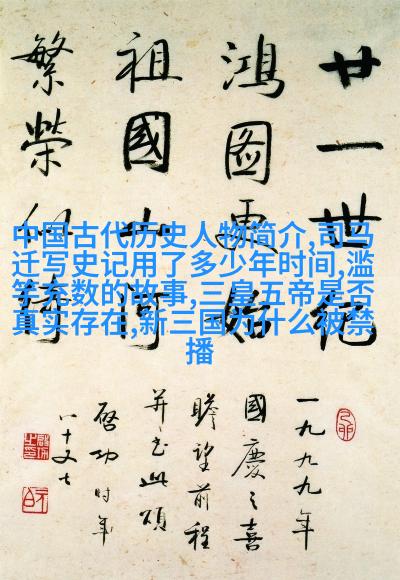 廿一世纪
鸿图更始
祖國山河
繁榮似绮
中国古代历史人物简介,司马
迁写史记用了多少年时间,滥
竽充数的故事,三皇五帝是否
真实存在,新三国为什么被禁
播
一九九九年
國慶之喜
瞻望前程
并书此頌
啓功时年
八十又七